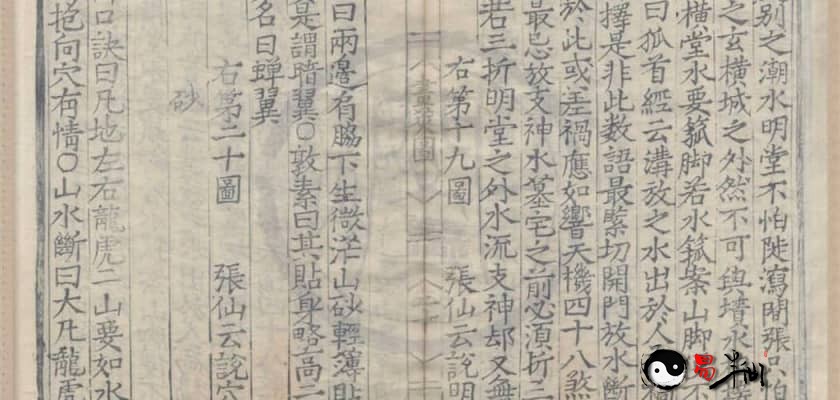 别之潮水明堂不怕陡瀉閗張只怕
之玄橫城之外然不可與墻水
橫堂水要箛脚若水箛案山脚不
曰狐首經云溝放之水出於人
擇是非此数語最緊切開門放水斷
於此或差禍應如響天機四十八煞
最忌放支神水墓宅之前必湏折二
若三折明堂之外水流支神却又無
右第十九圖 張仙云說明
曰兩邊有脇下生微茫山砂輕簿貼
是謂暗翼〇敦素曰其貼身略高二
名曰蝉翼
右第二十圖 張仙云說穴
砂
口訣曰凡地左右龍虎二山要如水
抱向穴有情〇山水斷曰大凡龍虎
易